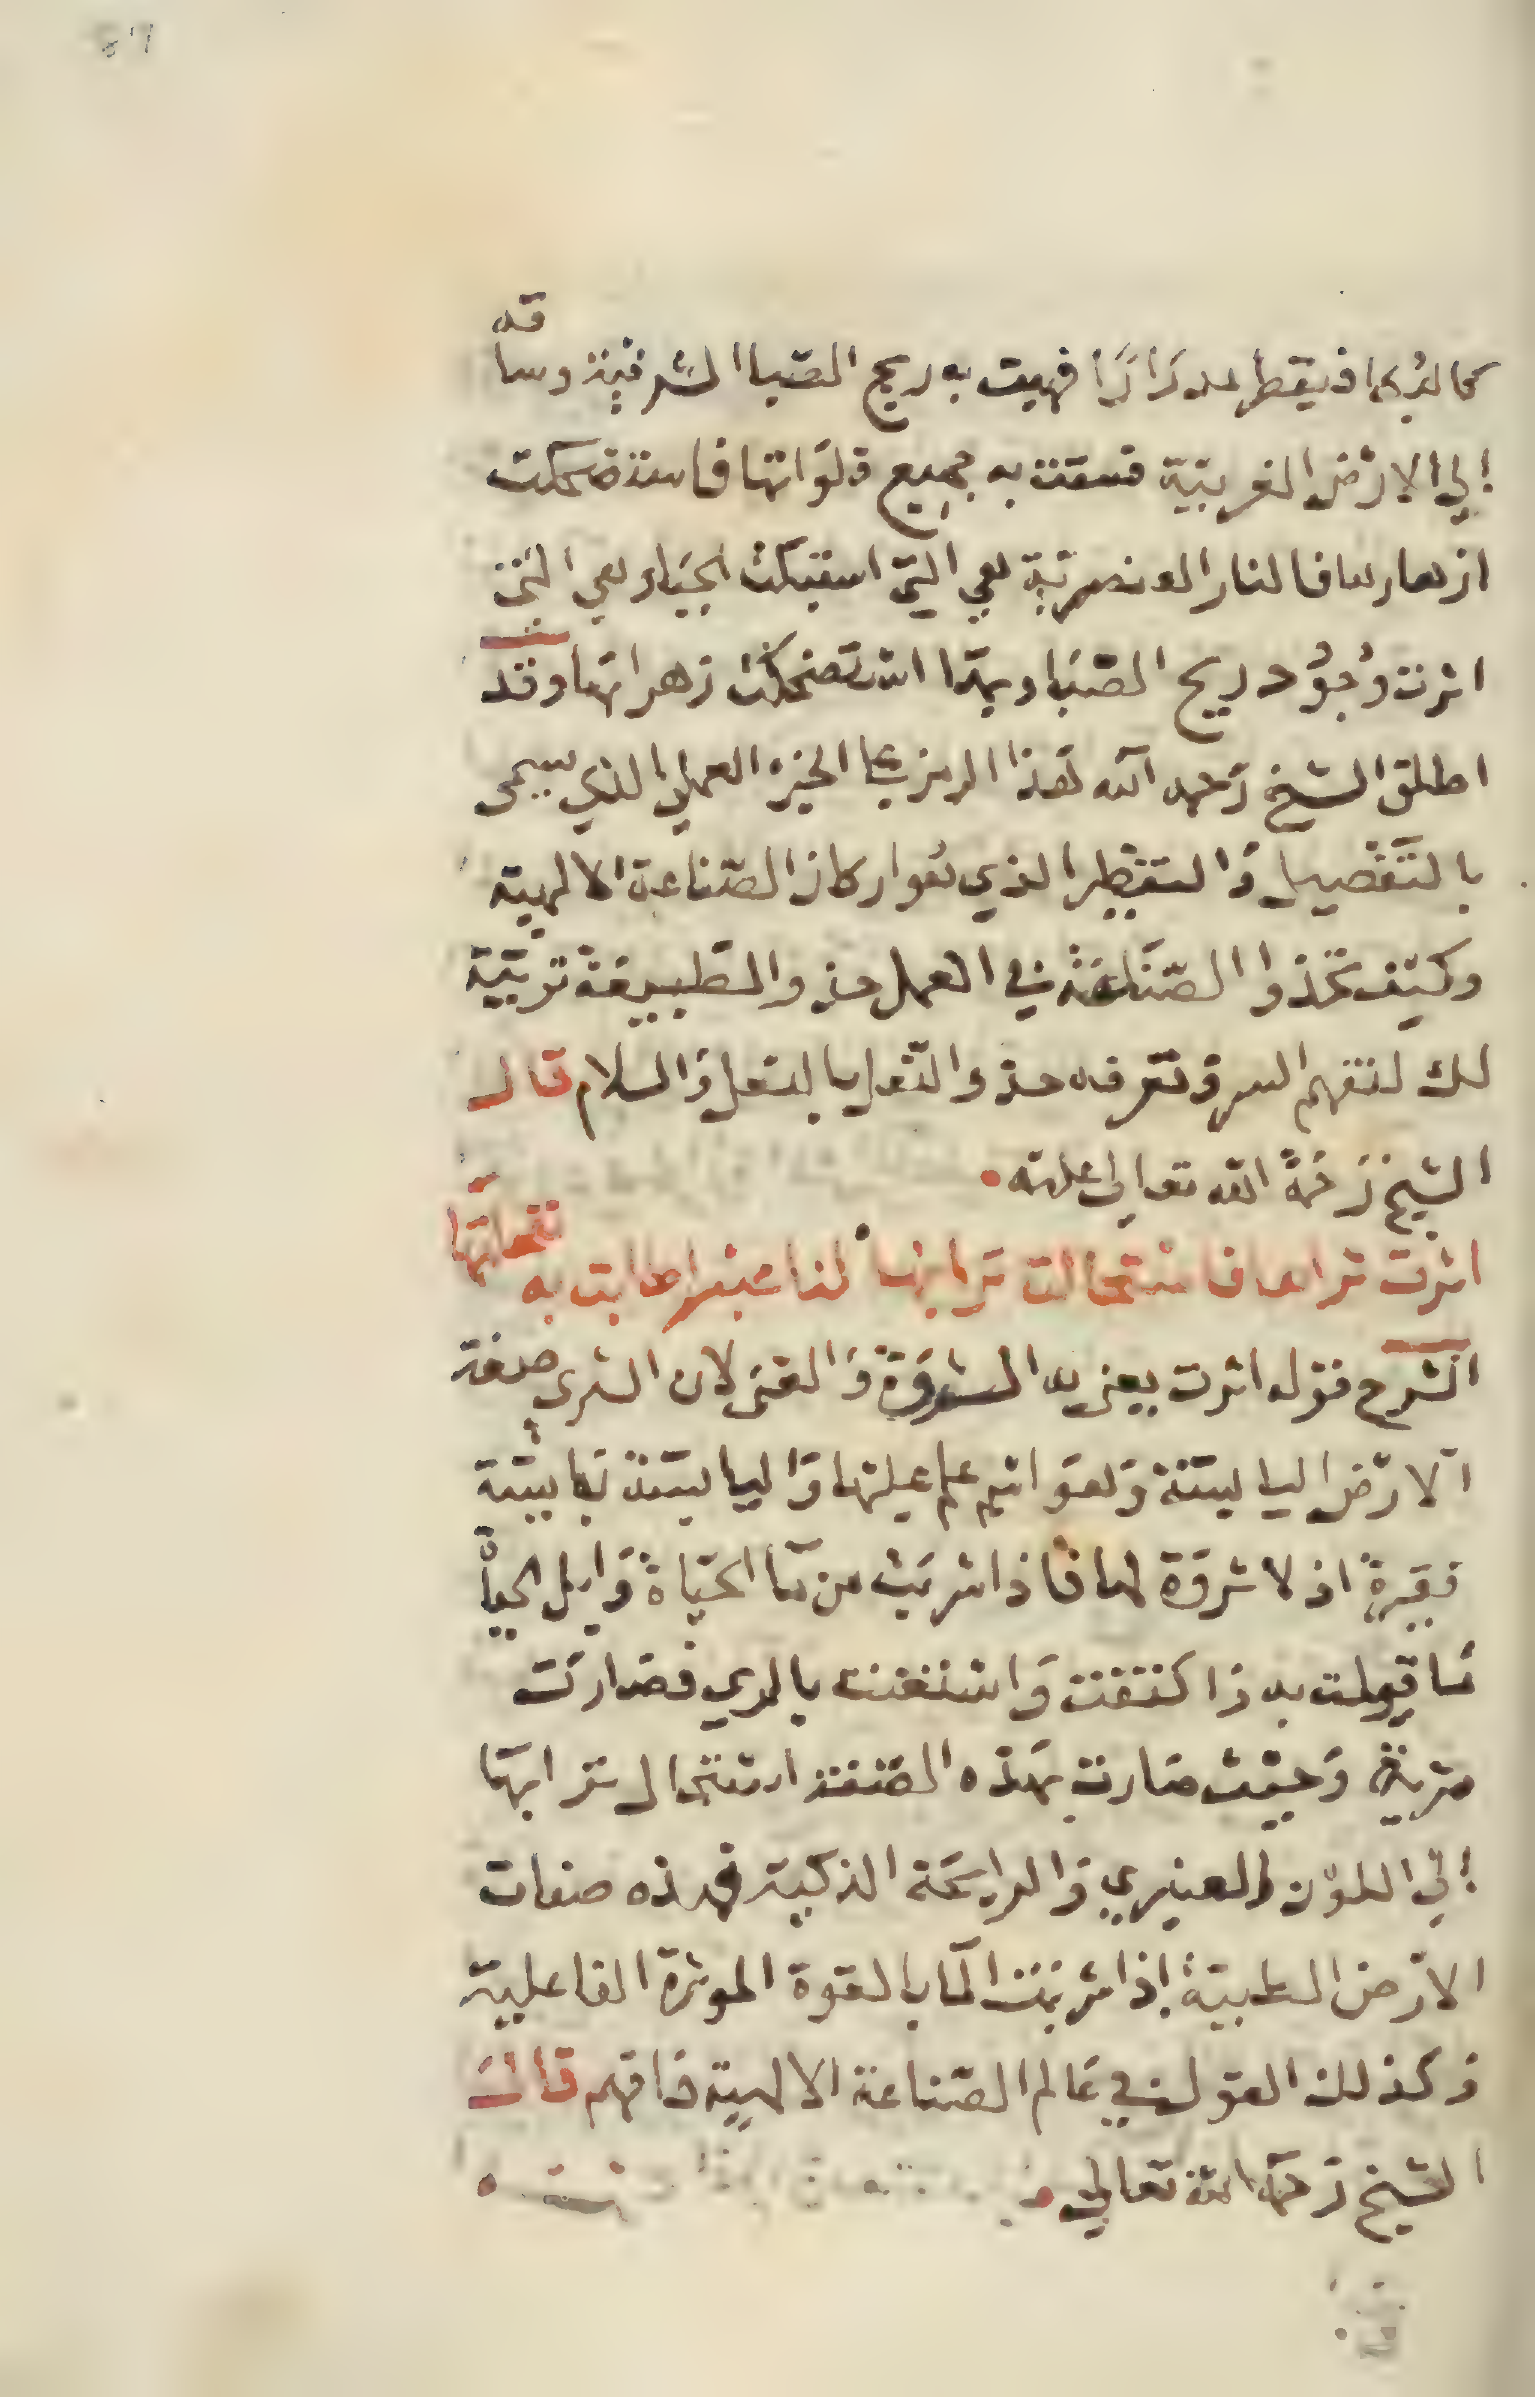 كالبخار فيقطر مدرارا فهبت به ريح الصبا الشرقية وساقه
إلي الارض الغربية فسقت به جميع فلواتها فاستضحكت
ازهارها فالنار العنصرية هي التي استبكت الحيا وهي التي
اثرت وجود ريح الصبا وبها استضحكت زهراتها وقد
اطلق الشيخ رحمه الله هذا الرمز علي الجزء العملي الذي يسمى
بالتفصيل والتقطير الذي هو اركان الصناعة الالهية
وكيف تحذوا الصناعة في العمل حذو الطبيعة تربية
لك لتفهم السر وتعرفه حذو النعل بالنعل والسلام قال
الشيخ رحمة الله تعالى عليه
اثرت تراها فاستحالت ترابها لنا عنبرا طابت به نفحاتها
الشرح قوله اثرت يعني به الثروة والغنى لان الثرى صفة
الارض اليابسة وهو اسم علم عليها واليابسة يابسة
فقيرة اذ لا ثروة لها فاذا شربت من ماء الحياة وابل الحيا
ما قبلت به واكتفت واستغنت بالري فصارت
مثرية وحيث صارت بهذه الصفة استحال ترابها
إلى اللون العنبري والرايحة الذكية فهذه صفات
الارض الطيبة إذا شربت الماء بالقوة الموثرة الفاعلية
وكذلك القول في عالم الصناعة الالهية فافهم قال
الشيخ رحمه الله تعالي